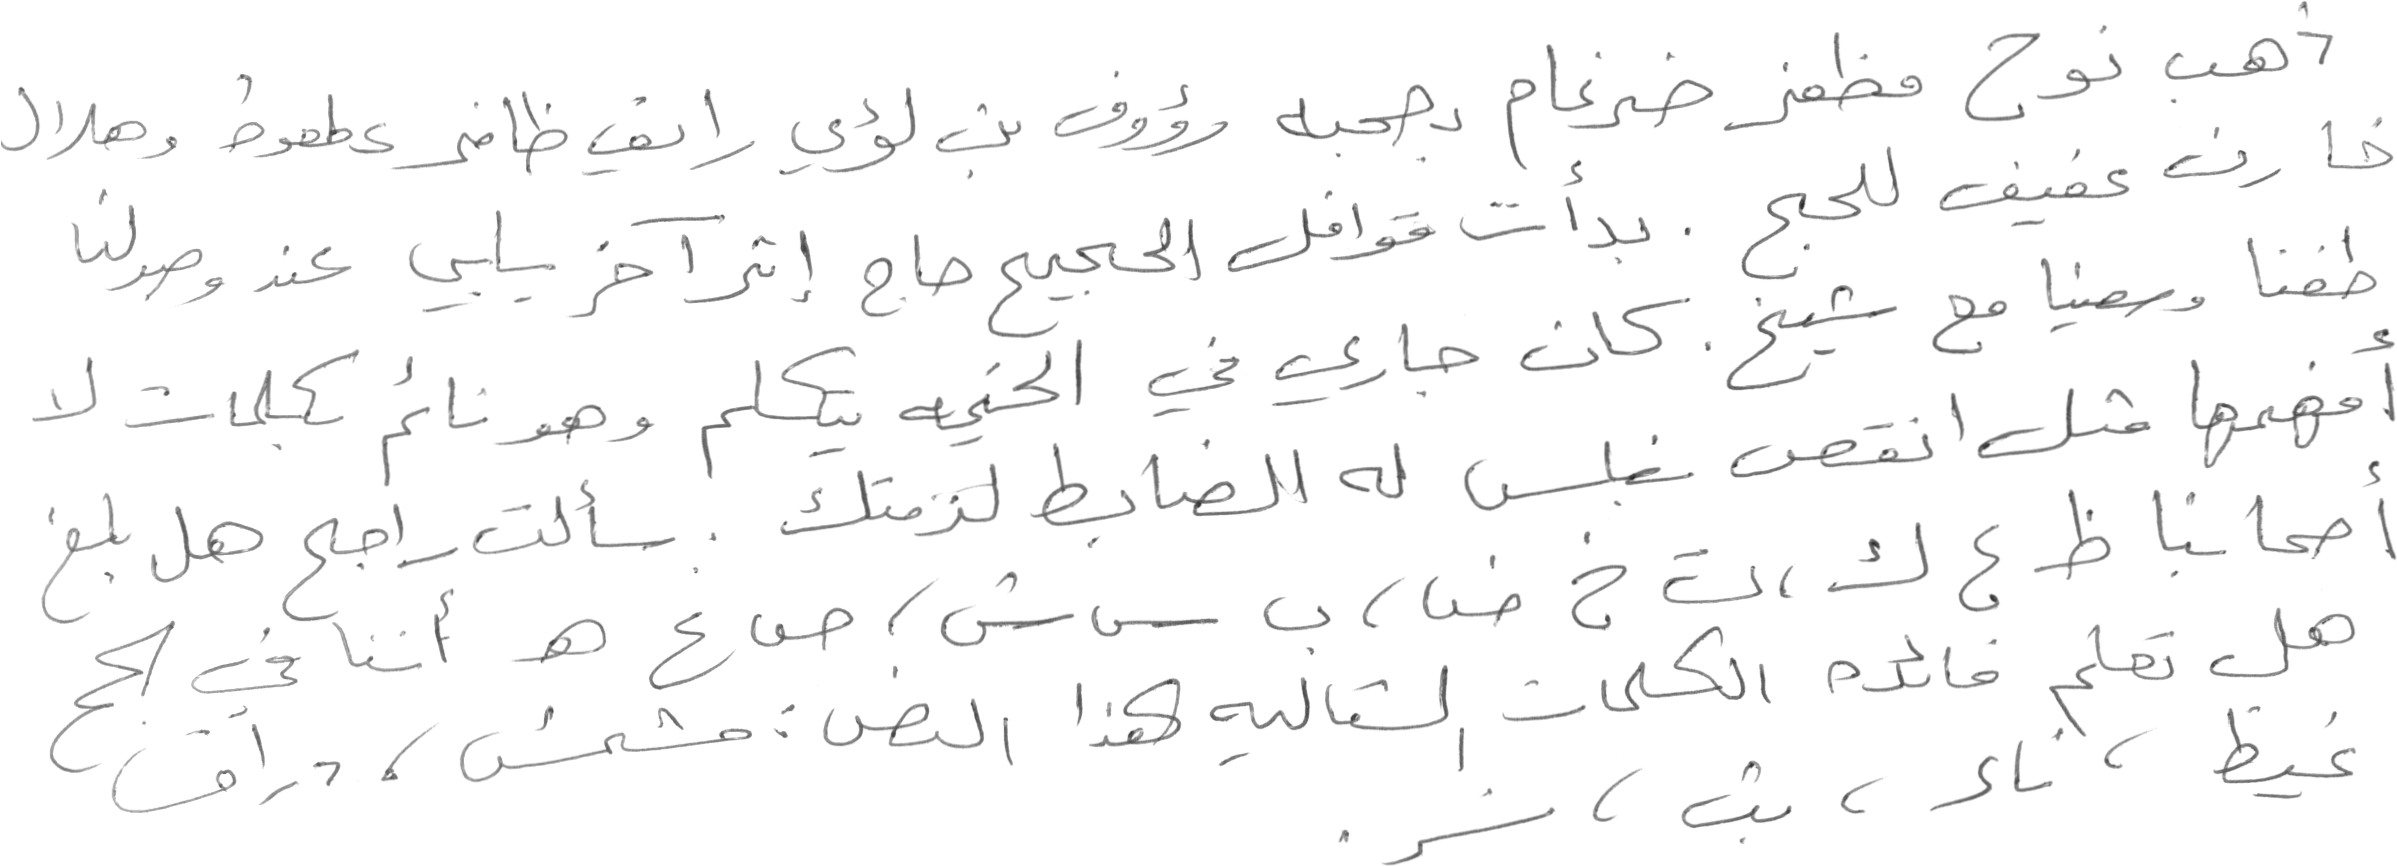 ذهب نوح مظفر ضرغام بصحبه رؤوف بن لؤي رائف ظافر عطعوط وهلال
خازن عفيف للحج . بدأت قوافل الحجيج حاج إثر آخر يلبي عند وصولنا
طفنا وسعينا مع شيخ . كان جاري في الخيمه يتكلم وهو نائم بكلمات لا
أفهمها مثل انقص غلس له الضابط لزمتك . سألت راجح هل بلغ
أصحابنا ظ ع ك ، ث خ ضا ، ب س ش ، ص ع هـ أننا في الحج
هل تعلم فائده الكلمات التاليه لهذا النص : مشمش ، دراق ،
غيظ ، ناء ، بث ، نر .